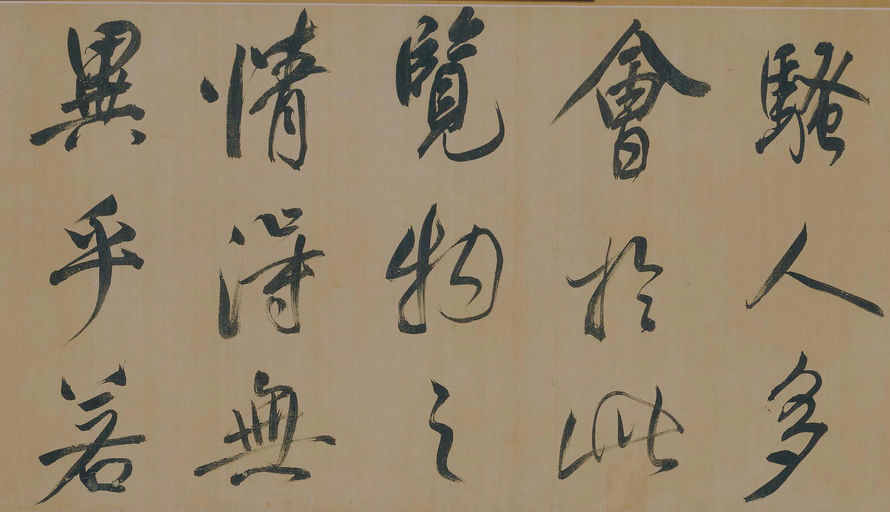 騷人多
會於此
覽物之
情得無
異乎若